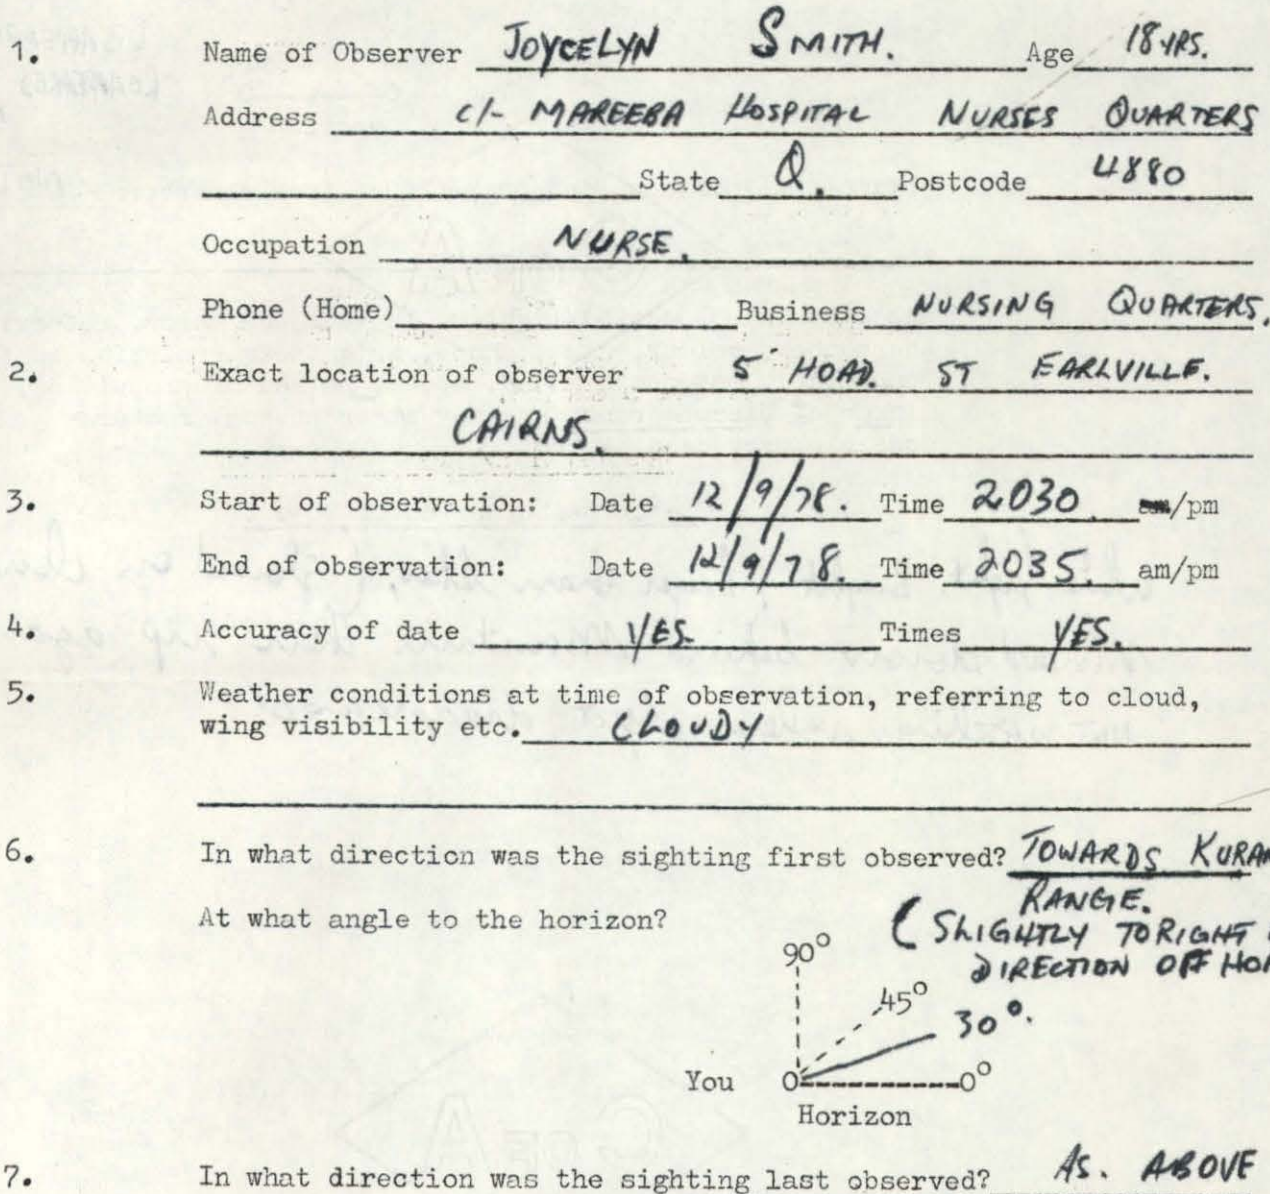 1. Name of Observer JOYCELYN SMITH. Age 18 YRS.
Address C/- MAREEBA HOSPITAL NURSES QUARTERS
State Q. Postcode 4880
Occupation NURSE.
Phone (Home) Business NURSING QUARTERS.
2. Exact location of observer 5 HOAD. ST EARLVILLE.
CAIRNS.
3. Start of observation: Date 12/9/78. Time 2030. am/pm
End of observation: Date 12/9/78. Time 2035. am/pm
4. Accuracy of date YES. Times YES.
5. Weather conditions at time of observation, referring to cloud,
wing visibility etc. CLOUDY
6. In what direction was the sighting first observed? TOWARDS
RANGE.
At what angle to the horizon? (SLIGHTLY TO RIGHT
DIRECTION OFF
90°
45°
30°.
You 0 0°
Horizon
7. In what direction was the sighting last observed? AS. ABOVE